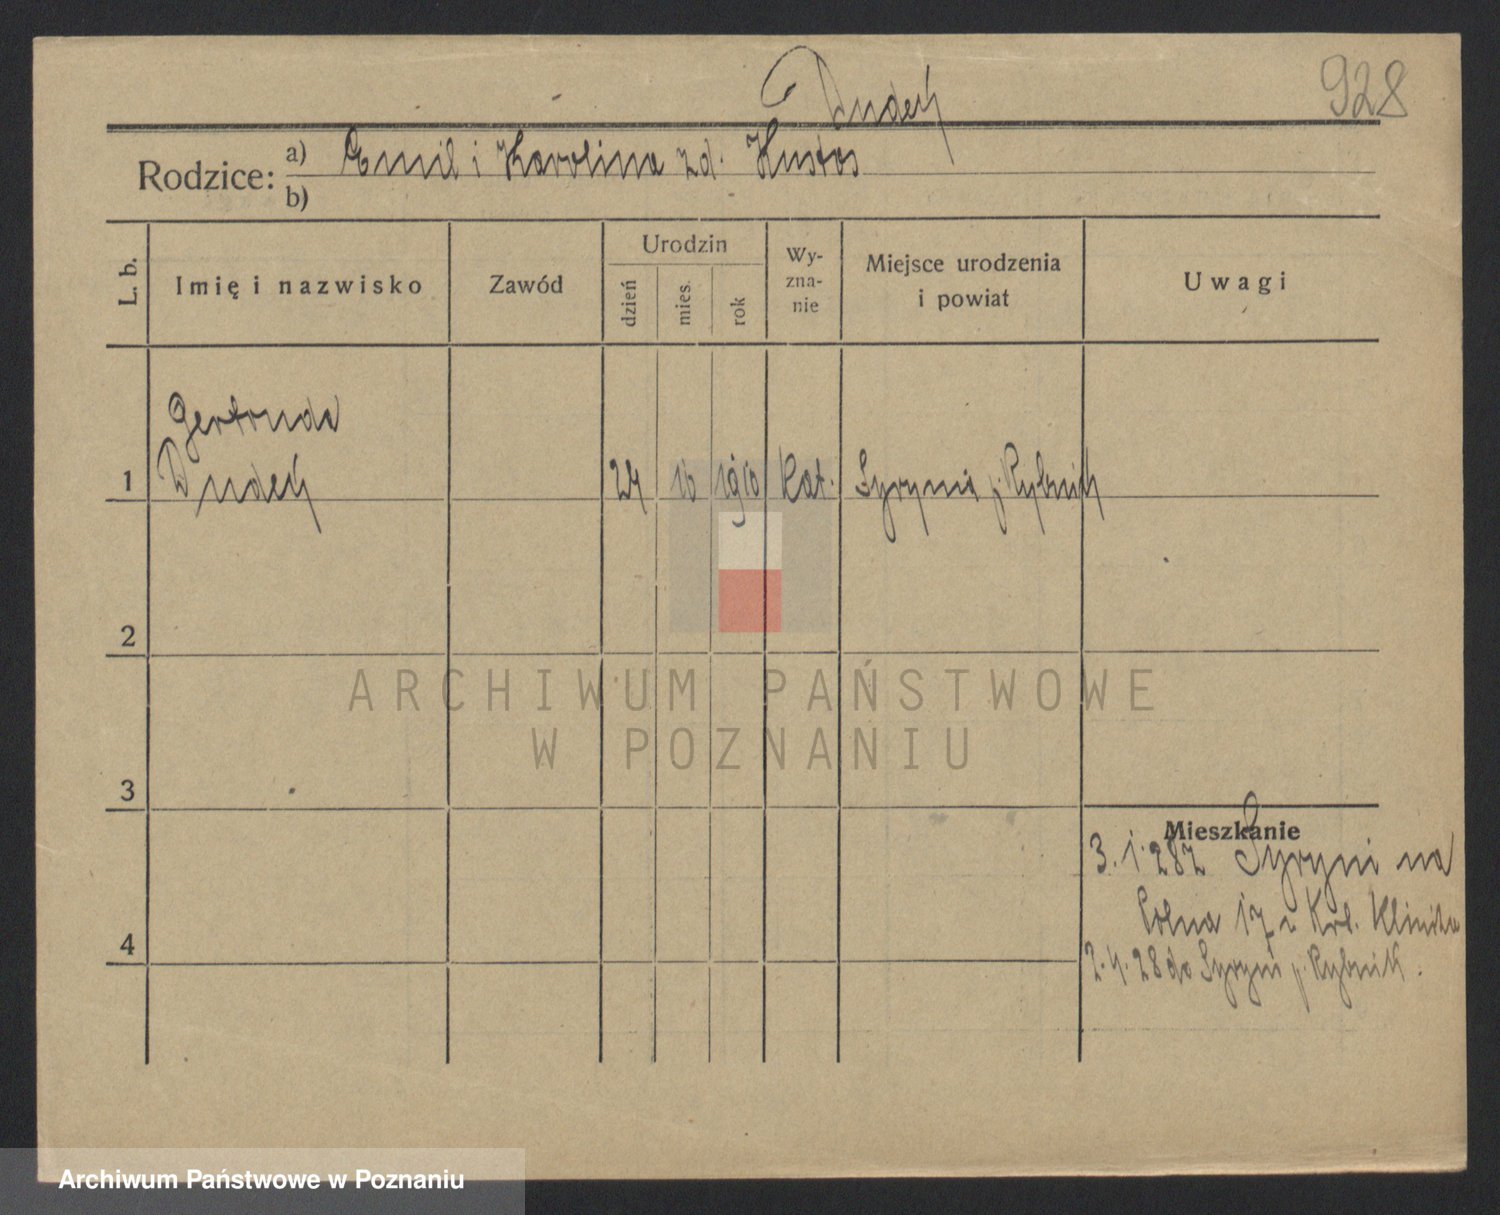 928
Dudek
Rodzice: a) Emil i Karolina zd. Hustos
b)
L. b.
Imię i nazwisko
Zawód
Urodzin
dzień
mies.
rok
Wy-
zna-
nie
Miejsce urodzenia
i powiat
Uwagi
Gertruda
1 Dudek 24 10 1910 kat. Syrynia p. Rybnik
2
3
4
Mieszkanie
3. 1. 28 z Syryni na
Polna 17 u Kob. Klinika
2. 4. 28 do Syryni p. Rybnik.
ARCHIWUM PAŃSTWOWE
W POZNANIU
Archiwum Państwowe w Poznaniu